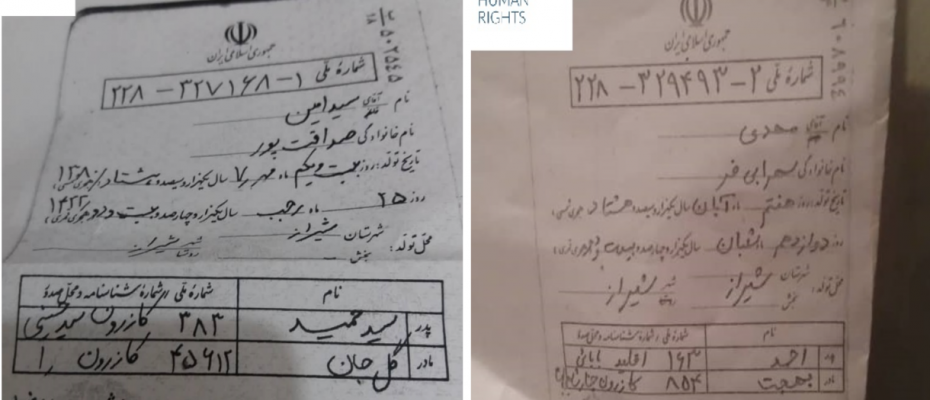 جمهوری اسلامی ایران
شمارهٔ ملی ۱-۳۲۷۱۶۸-۲۲۸
نام آقای سید امین
نام خانوادگی صداقت پور
تاریخ تولد: روز بیست و یکم ماه مهر سال یکهزار و سیصد و هشتاد هجری شمسی
روز ۲۵ ماه رجب سال یکهزار و چهارصد و بیست و دو هجری قمری
محل تولد: شهرستان شیراز بخش شهر روستا شیراز
نام شمارهٔ ملی / شمارهٔ شناسنامه و محل صدور
پدر سید حمید ۳۸۳ کازرون
مادر گل جان ۴۵۶۱۲ کازرون
HUMAN
RIGHTS
جمهوری اسلامی ایران
شمارهٔ ملی ۲-۳۲۹۴۹۳-۲۲۸
نام آقای مهدی
نام خانوادگی سهرابی فر
تاریخ تولد: روز هفتم ماه آبان سال یکهزار و سیصد و هشتاد هجری شمسی
روز دوازدهم ماه شعبان سال یکهزار و چهارصد و بیست و دو هجری قمری
محل تولد: شهرستان شیراز بخش شهر شیراز
نام شمارهٔ ملی / شمارهٔ شناسنامه و محل صدور
پدر احمد ۱۶۳ اقلید
مادر بهجت ۸۵۴ کازرون